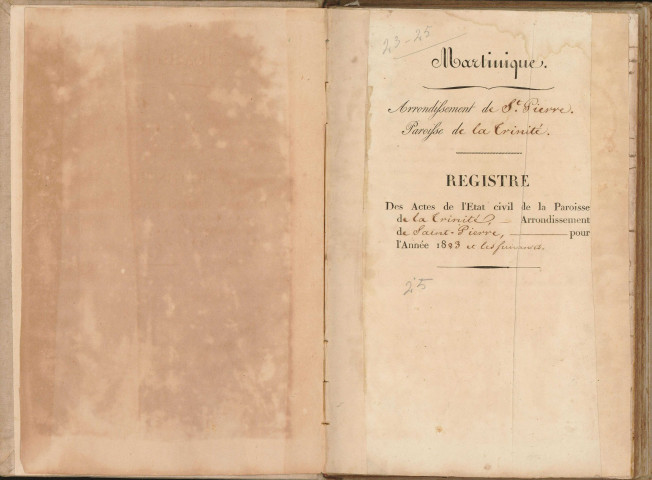 23-25
Martinique.
Arrondissement de St. Pierre.
Paroisse de la Trinité.
REGISTRE
Des Actes de l'Etat civil de la Paroisse
de la Trinité, — Arrondissement
de Saint-Pierre, — pour
l'Année 1823 et les suivantes.
25